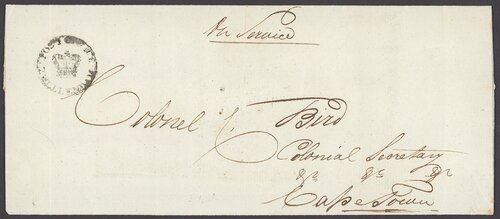 On Service
POST OFFICE
Colonel C. Bird
Colonial Secretary
&c &c &c
Cape Town